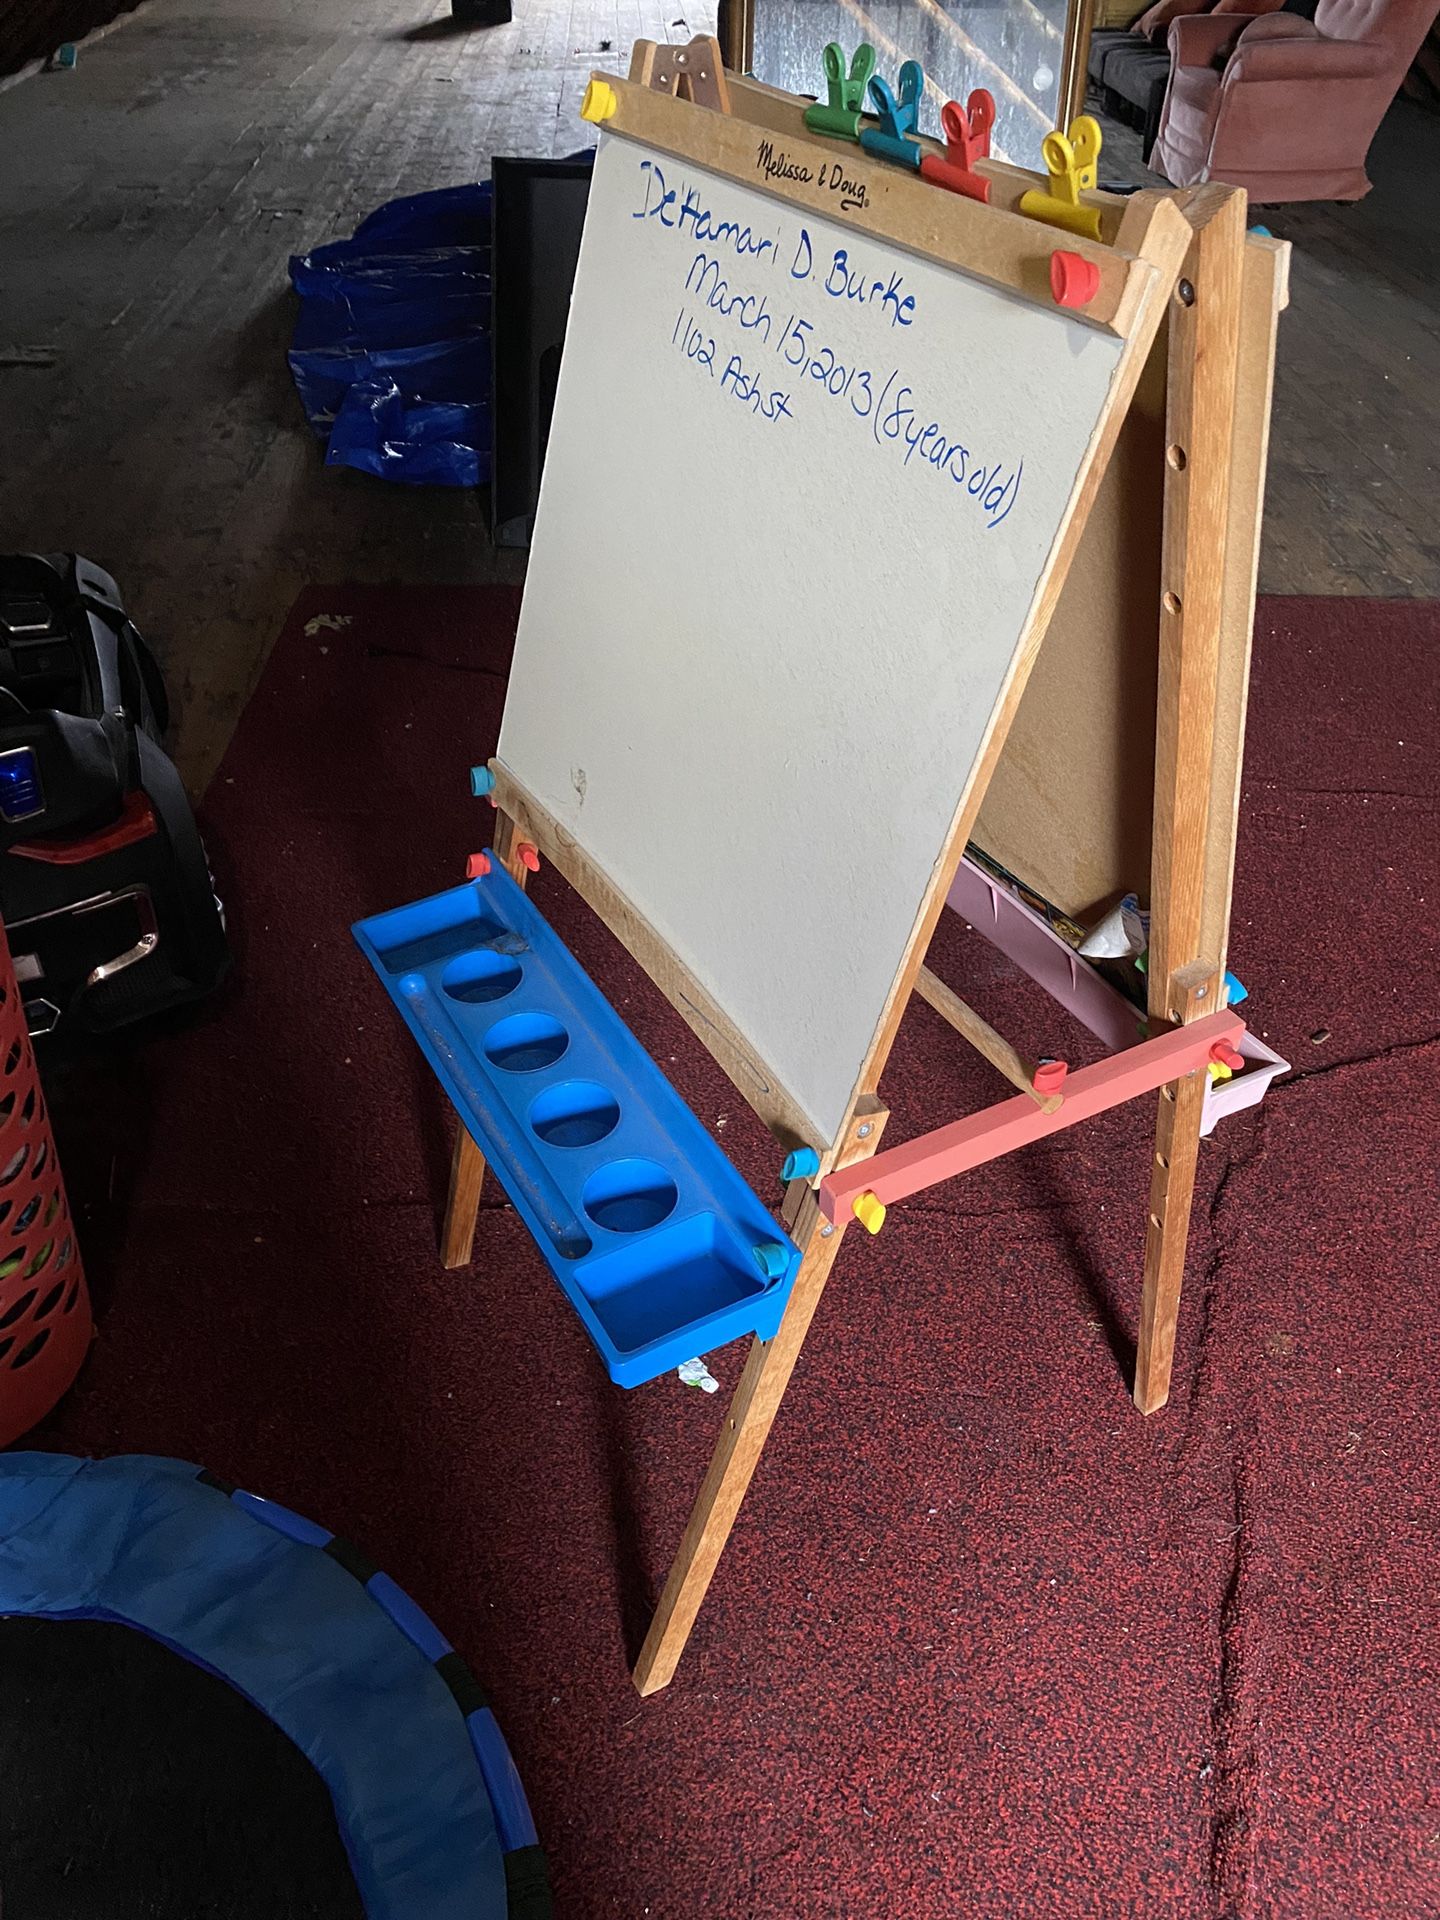 Melissa & Doug
De'Hamari D. Burke
March 15, 2013 (8 years old)
1102 Ash st